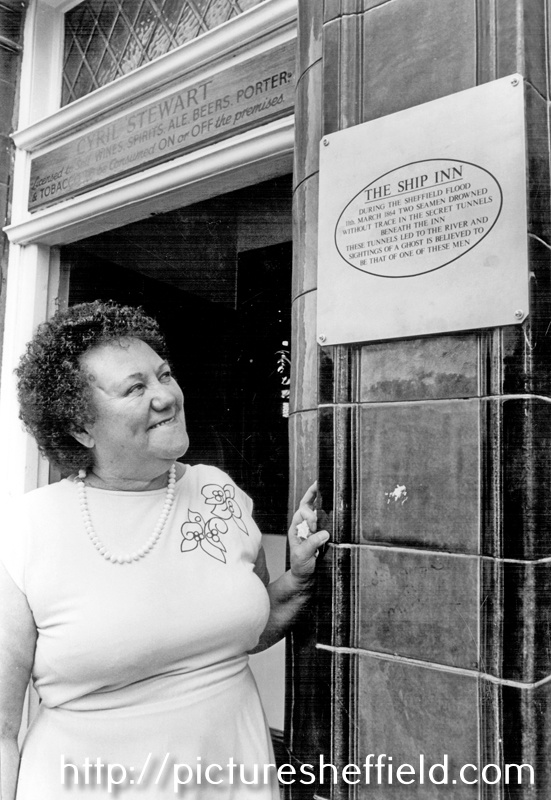 CYRIL STEWART
Licensed to Sell WINES, SPIRITS, ALE, BEERS, PORTER,
& TOBACCO to be Consumed ON or OFF the premises.
THE SHIP INN
DURING THE SHEFFIELD FLOOD
11th. MARCH 1864 TWO SEAMEN DROWNED
WITHOUT TRACE IN THE SECRET TUNNELS
BENEATH THE INN
THESE TUNNELS LED TO THE RIVER AND
SIGHTINGS OF A GHOST IS BELIEVED TO
BE THAT OF ONE OF THESE MEN
http://picturesheffield.com